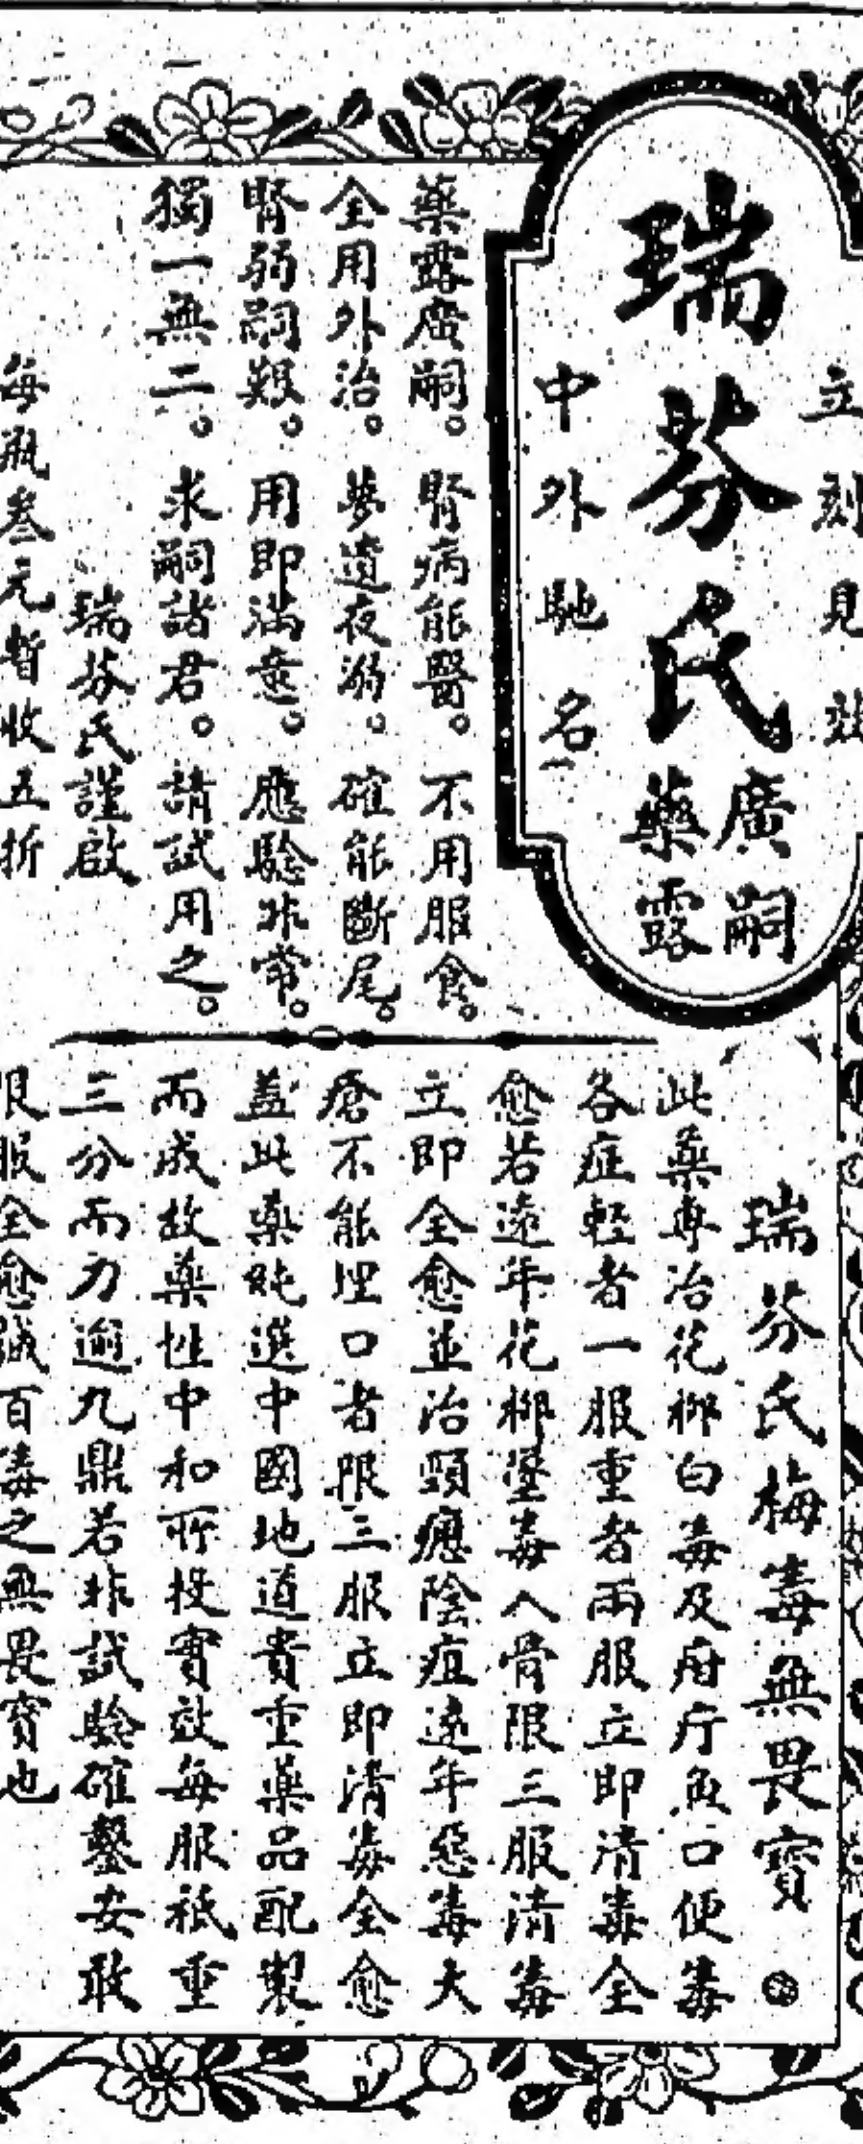 立刻見效
瑞芬氏
廣嗣
藥露
中外馳名
藥露廣嗣。腎病能醫。不用服食。
全用外治。夢遺夜溺。確能斷尾。
腎弱嗣艱。用即滿意。應驗非常。
獨一無二。求嗣諸君。請試用之。
瑞芬氏謹啟
每瓶叁元暫收五折
瑞芬氏梅毒無畏寶
此藥專治花柳白毒及疳疔魚口便毒
各症輕者一服重者兩服立即清毒全
愈若遠年花柳墜毒入骨限三服清毒
立即全愈並治頸癧陰疽遠年惡毒大
瘡不能埋口者限三服立即清毒全愈
蓋此藥純選中國地道貴重藥品配製
而成故藥性中和所投實效每服祇重
三分而力逾九鼎若非試驗確鑿安敢
限服全愈誠百毒之無畏寶也